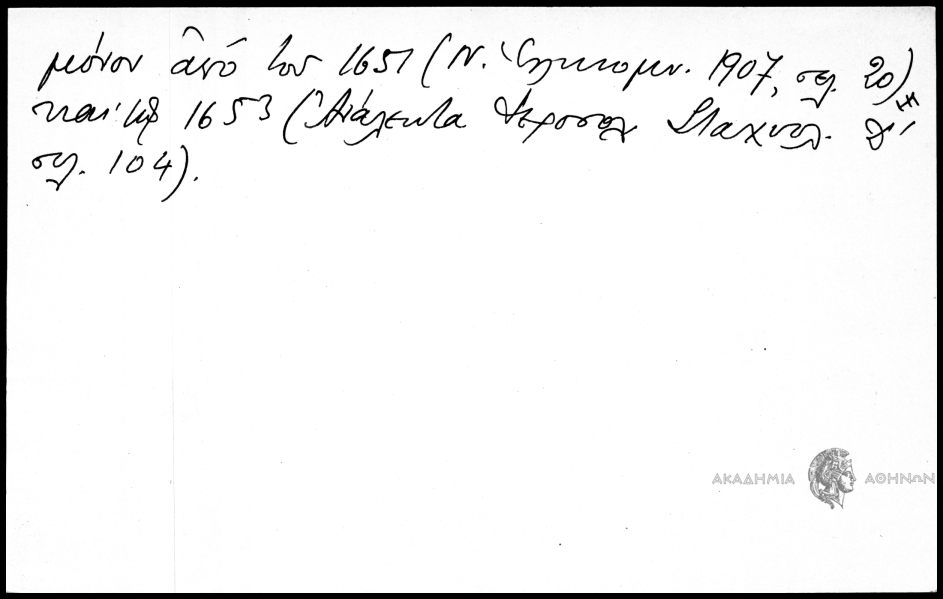 μόνον ἀπό του 1651 (Ν. Ἑλληνομν. 1907, σελ. 20)
καί 1653 (Ἀνάλεκτα Ἱεροσολ Σταχυολ. Δ'
σελ. 104).
ΑΚΑΔΗΜΙΑ ΑΘΗΝΩΝ